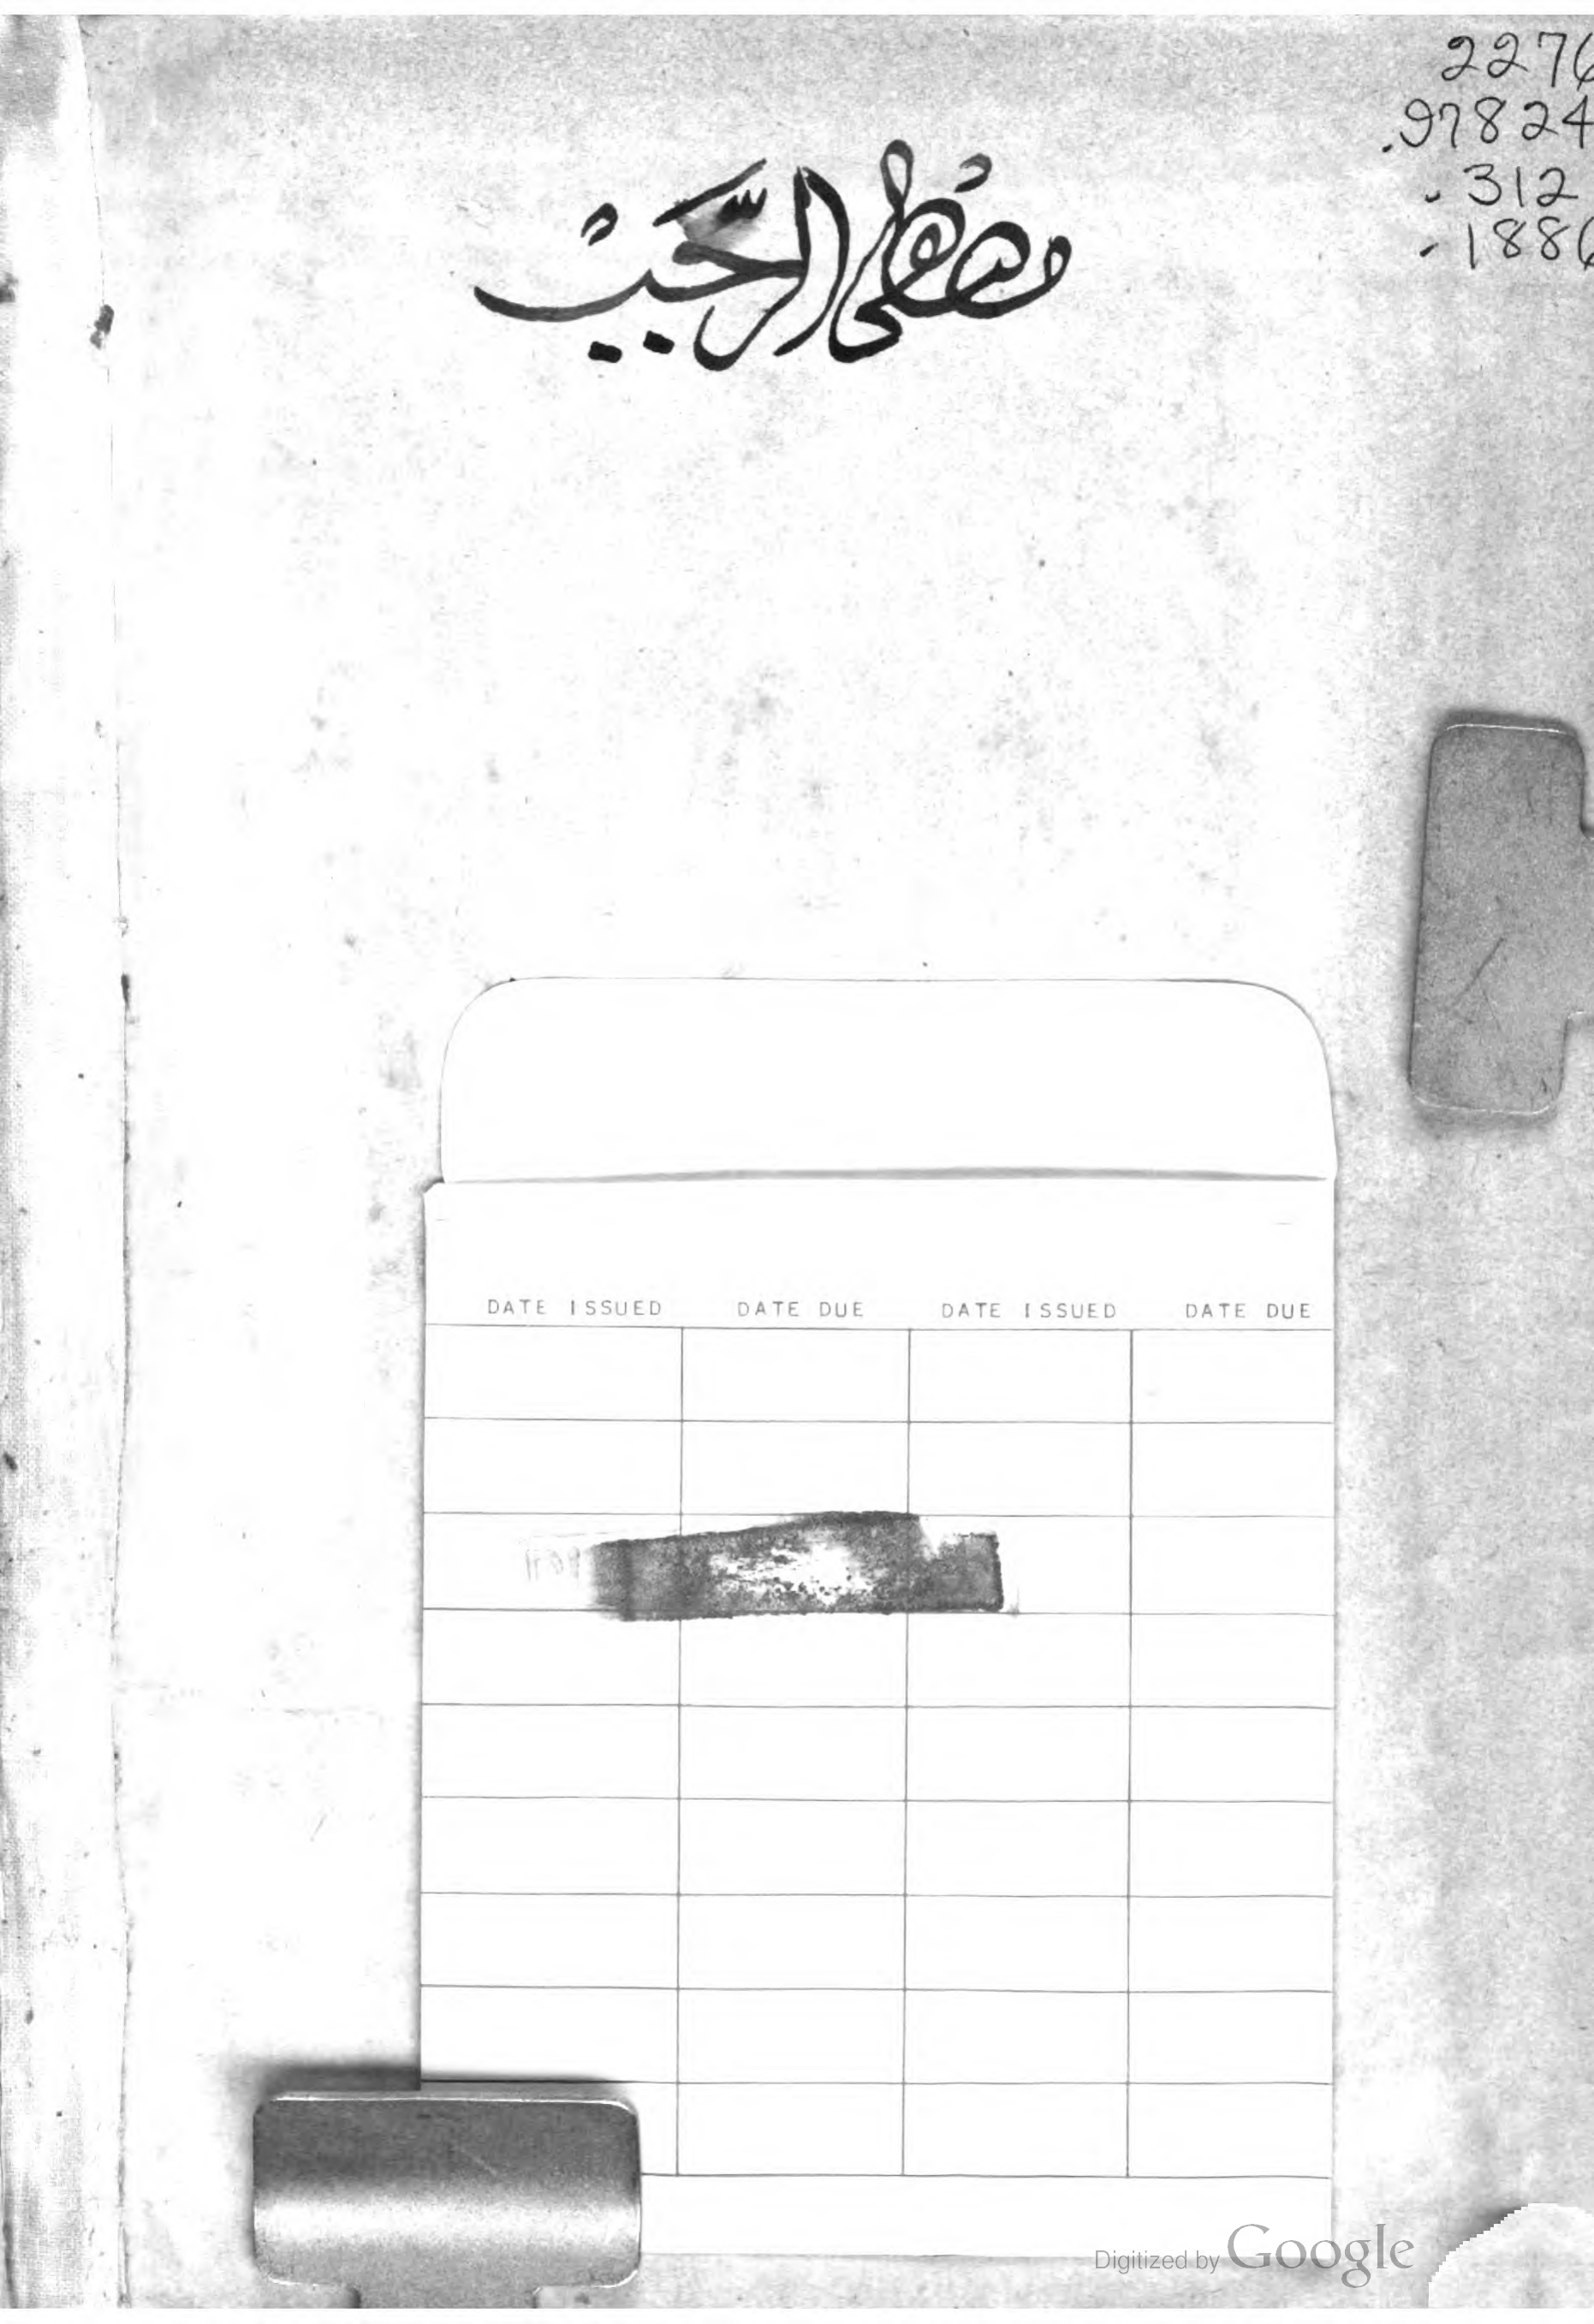 2276
.97824
.312
.1886
مصطفى الرحبي
DATE ISSUED DATE DUE DATE ISSUED DATE DUE
Digitized by Google